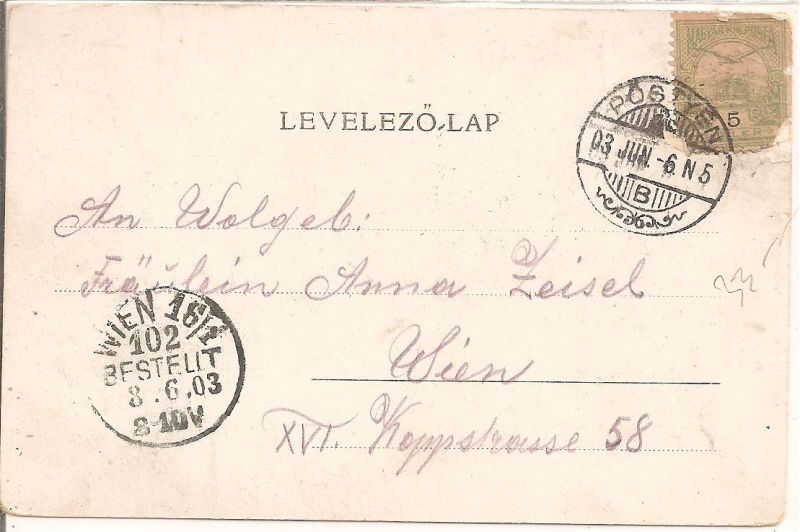 MAGYAR KIR. POSTA
5
PÖSTYÉN
03 JUN. -6. N 5
B
LEVELEZŐ-LAP
An Wolgeb:
Fräulein Anna Zeisel
Wien
XVI. Koppstrasse 58
WIEN 16/1
102
BESTELLT
8.6.03
8-10V